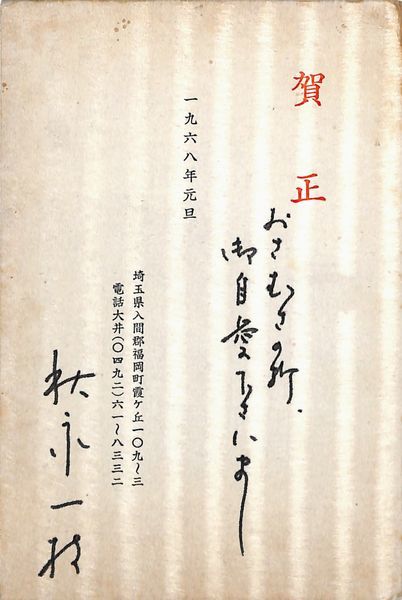 賀正
おさむさの折、
御自愛下さいまし
一九六八年元旦
埼玉県入間郡福岡町霞ケ丘一〇九〜三
電話大井(〇四九二)六一〜八三三二
秋永一枝